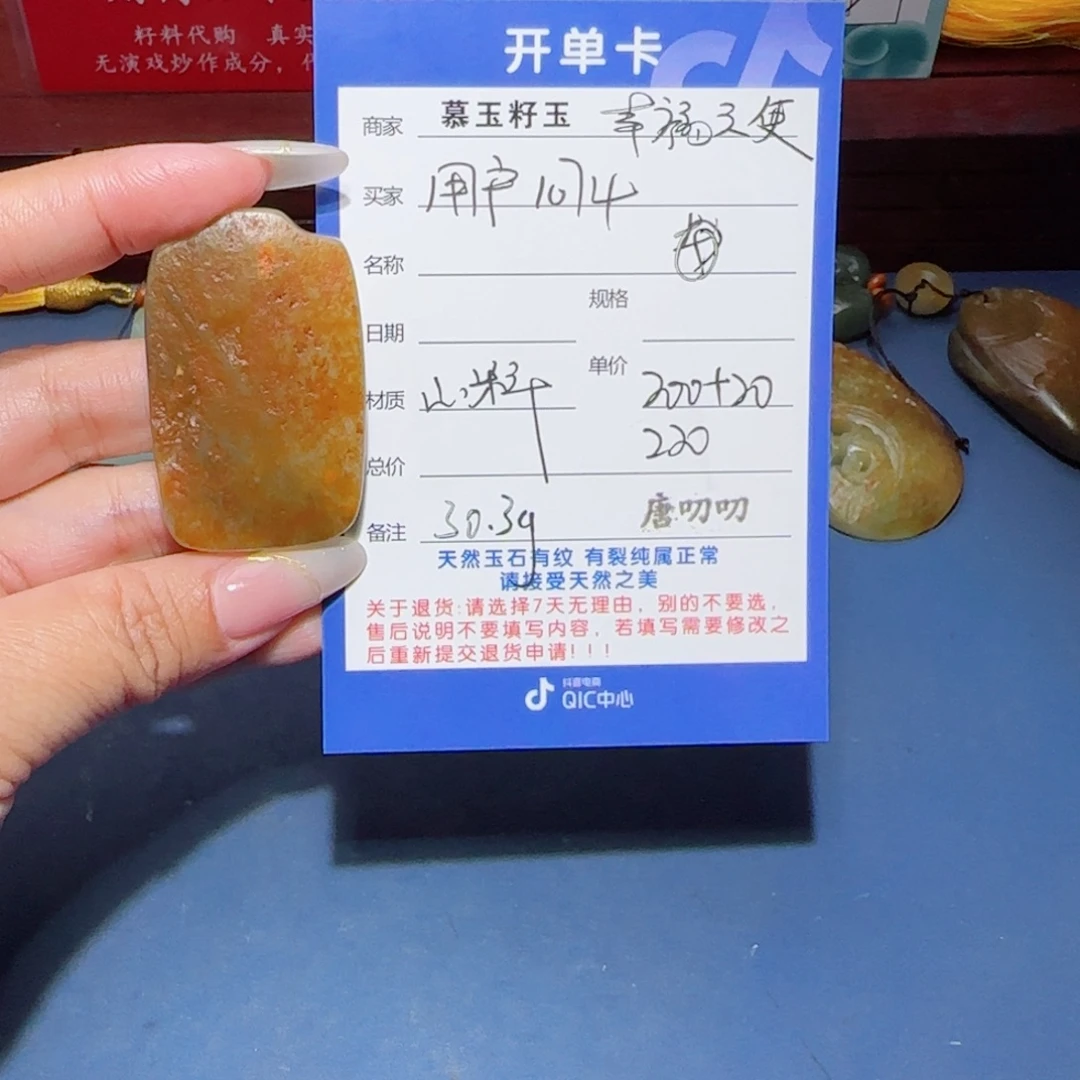 籽料代购 真实
无演戏炒作成分，代
开单卡
商家 慕玉籽玉 幸福天使
买家 用户1074
名称
规格
日期
单价 200+20
材质 山料
220
总价
备注 30.3g 唐叨叨
天然玉石有纹 有裂纯属正常
请接受天然之美
关于退货:请选择7天无理由，别的不要选，
售后说明不要填写内容，若填写需要修改之
后重新提交退货申请!!!
抖音电商
QIC中心